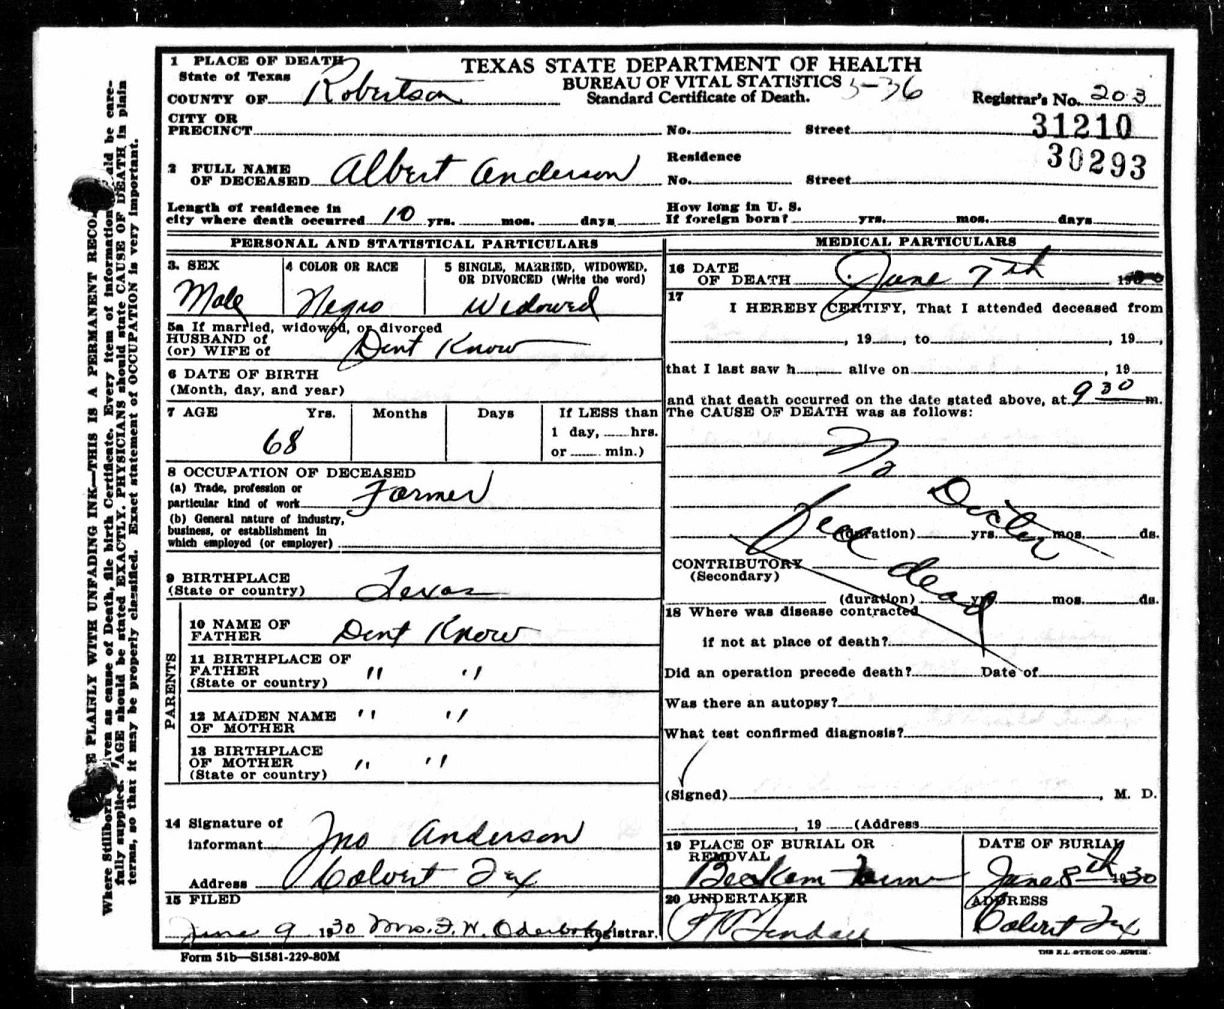 TEXAS STATE DEPARTMENT OF HEALTH
BUREAU OF VITAL STATISTICS
Standard Certificate of Death.
5-36
Registrar's No. 203
31210
30293
1 PLACE OF DEATH
State of Texas
COUNTY OF Robertson
CITY OR
PRECINCT No. Street
2 FULL NAME
OF DECEASED Albert Anderson
Residence
No. Street
Length of residence in
city where death occurred 10 yrs. mos. days
How long in U. S.
If foreign born? yrs. mos. days
PERSONAL AND STATISTICAL PARTICULARS
3. SEX
Male
4 COLOR OR RACE
Negro
5 SINGLE, MARRIED, WIDOWED,
OR DIVORCED (Write the word)
Widowed
5a If married, widowed, or divorced
HUSBAND of
(or) WIFE of Dont Know
6 DATE OF BIRTH
(Month, day, and year)
7 AGE Yrs. Months Days If LESS than
68 1 day, hrs.
or min.)
8 OCCUPATION OF DECEASED
(a) Trade, profession or
particular kind of work Farmer
(b) General nature of industry,
business, or establishment in
which employed (or employer)
9 BIRTHPLACE
(State or country) Texas
PARENTS
10 NAME OF
FATHER Dont Know
11 BIRTHPLACE OF
FATHER " "
(State or country)
12 MAIDEN NAME " "
OF MOTHER
13 BIRTHPLACE
OF MOTHER " "
(State or country)
14 Signature of
informant Jno Anderson
Address Calvert Tex
15 FILED
June 9 1930 Mrs. F. W. Registrar.
Form 51b—S1581-229-80M
MEDICAL PARTICULARS
16 DATE
OF DEATH June 7th
17
I HEREBY CERTIFY, That I attended deceased from
, 19 , to , 19 ,
that I last saw h alive on , 19
and that death occurred on the date stated above, at 9 30 m.
The CAUSE OF DEATH was as follows:
No Doctor
(duration) yrs. mos. ds.
dead
CONTRIBUTORY
(Secondary)
(duration) yrs. mos. ds.
18 Where was disease contracted
if not at place of death?
Did an operation precede death? Date of
Was there an autopsy?
What test confirmed diagnosis?
(Signed) , M. D.
, 19 (Address
19 PLACE OF BURIAL OR
REMOVAL
DATE OF BURIAL
June 8th 1930
20 UNDERTAKER
ADDRESS
Calvert Tex
THE E.L. STECK CO. AUSTIN.
E PLAINLY WITH UNFADING INK—THIS IS A PERMANENT RECO
Where Stillborn iven as cause of Death, file birth Certificate. Every item of information ld be care-
fully supplied. AGE should be stated EXACTLY. PHYSICIANS should state CAUSE OF DEATH in plain
terms, so that it may be properly classified. Exact statement of OCCUPATION is very important.